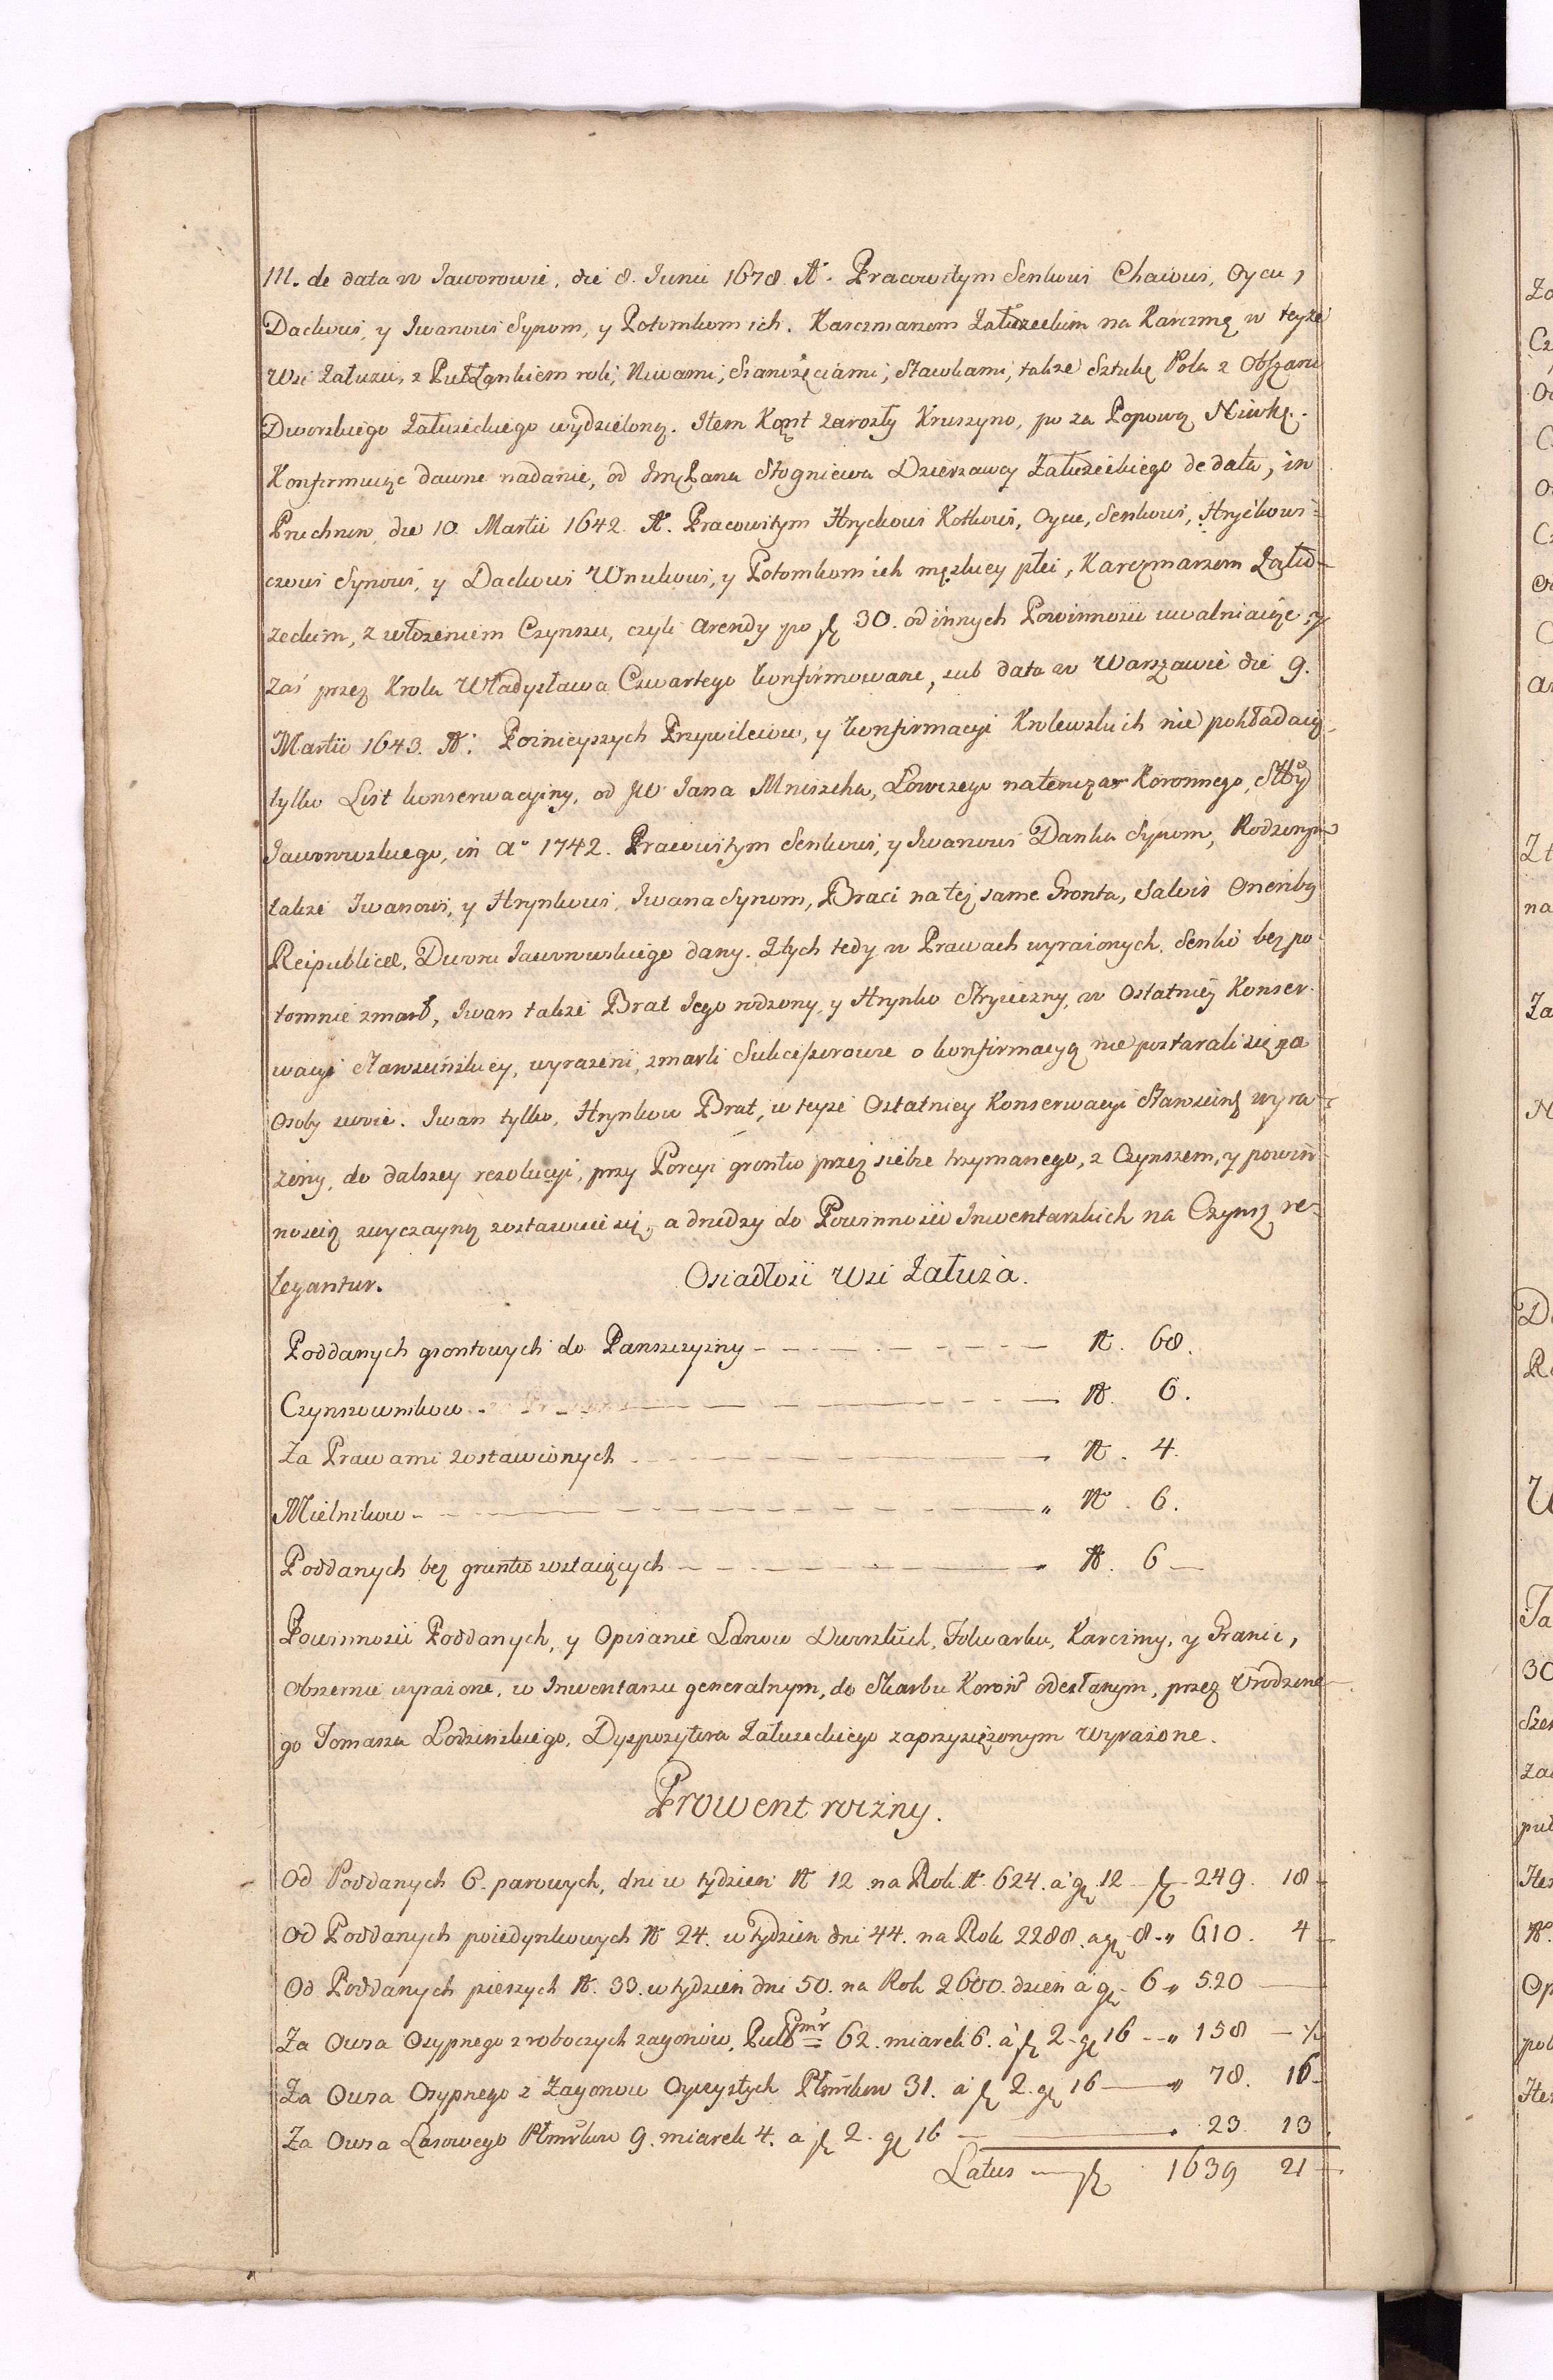 III. de data w Jaworowie, die 8. Junii 1678 A°. Pracowitym Senkowi Chaiowi, Oycu,
Dackowi, y Iwanowi Synom, y Potomkom ich. Karczmarzom Załuzeckim na Karczmę w teyze
Wsi Załuzu, z PułŁankiem roli, Niwami, Sianozęciami, Stawkami, takze Sztukę Pola z Obszaru
Dworskiego Załuzeckiego wydzieloną. Item Kąt zarosły Kruszyno, po za Popową Niwkę.
Konfirmuiąc dawne nadanie, od Jmę Pana Stogniewa Dzierzawcy Załuzeckiego de data, in
Pruchnin die 10. Martii 1642. A°. Pracowitym Hryckowi Kotkowi, Oycu, Senkowi, Hryćkowi-
czowi Synowi, y Dackowi Wnukowi, y Potomkom ich męzkiey płci, Karczmarzom Zału-
zeckim, z włozeniem Czynszu, czyli Arendy po fl 30. od innych Powinnosci uwalniaiąc y
zaś przez Krola Władysława Czwartego konfirmowane, sub data w Warszawie die 9.
Martii 1643. A°. Poznieyszych Przywileiow, y konfirmacyi Krolewskich nie pokładaią
tylko List konserwacyiny, od JW Jana Mniszcha, Łowczego natenczas Koronnego, Sttÿ
Jaworowskiego, in A° 1742. Pracowitym Senkowi, y Iwanowi Danka Synom, Rodzonym
takze Iwanowi, y Hrynkowi, Iwana Synom, Braci na tez same Gronta, Salvis Oneribg
Reipublicæ, Dworu Jaworowskiego dany. Ztych tedy w Prawach wyrazonych, Senko bezpo-
tomnie zmarł, Iwan takze Brat Jego rodzony, y Hrynko Stryieczny, w Ostatniey Konser-
wacyi Starościńskiey, wyrazeni, zmarli Sukcessorowie o konfirmacyą nie postarali się na
Osoby swoie. Iwan tylko, Hrynkow Brat, w teyze Ostatniey Konserwacyi Starościnś wyra-
zony, do dalszey rezolucyi, przy Porcyi grontu przez siebie trzymanego, z Czynszem, y powin-
noscią zwyczayną zostawuie się, a drudzy do Powinnosci Inwentarskich na Czynsz re-
legantur.
Osiadłosci Wsi Załuza.
Poddanych grontowych do Panszczyzny — N°. 68.
Czynszownikow — N°. 6.
Za Prawami zostawionych — N°. 4.
Mielnikow — „ N°. 6.
Poddanych bez gruntu zostaiących — N°. 6 —
Powinnosci Poddanych, y Opisanie Łanow Dworskich, Folwarku, Karczmy, y Granic,
obszernie wyrazone, w Inwentarzu generalnym, do Skarbu Koron odesłanym, przez Urodzone-
go Tomasza Łodzinskiego, Dyspozytora Załuzeckiego zaprzysięzonym wyrazone.
Prowent roczny.
Od Poddanych 6. parowych, dni w tydzien N° 12 na Rok N° 624. à gr 12 — fl 249. 18 —
Od Poddanych poiedynkowych N° 24. w Tydzien dni 44. na Rok 2288. a gr 8 „ 610. 4 —
Od Poddanych pieszych N°. 33. w tydzien dni 50. na Rok 2600. dzien à gr 6 „ 520 —
Za Owsa Osypnego z roboczych zagonow, Puł 62. miarek 6. à fl 2 gr 16 — „ 158 —
Za Owsa Osypnego z Zagonow Oyczystych Płmrkow 31. à fl 2. gr 16 — „ 78. 16 —
Za Owsa Lasowego Płmrkow 9. miarek 4. a fl 2. gr 16 — 23. 13.
Latus — fl 1639 21 —